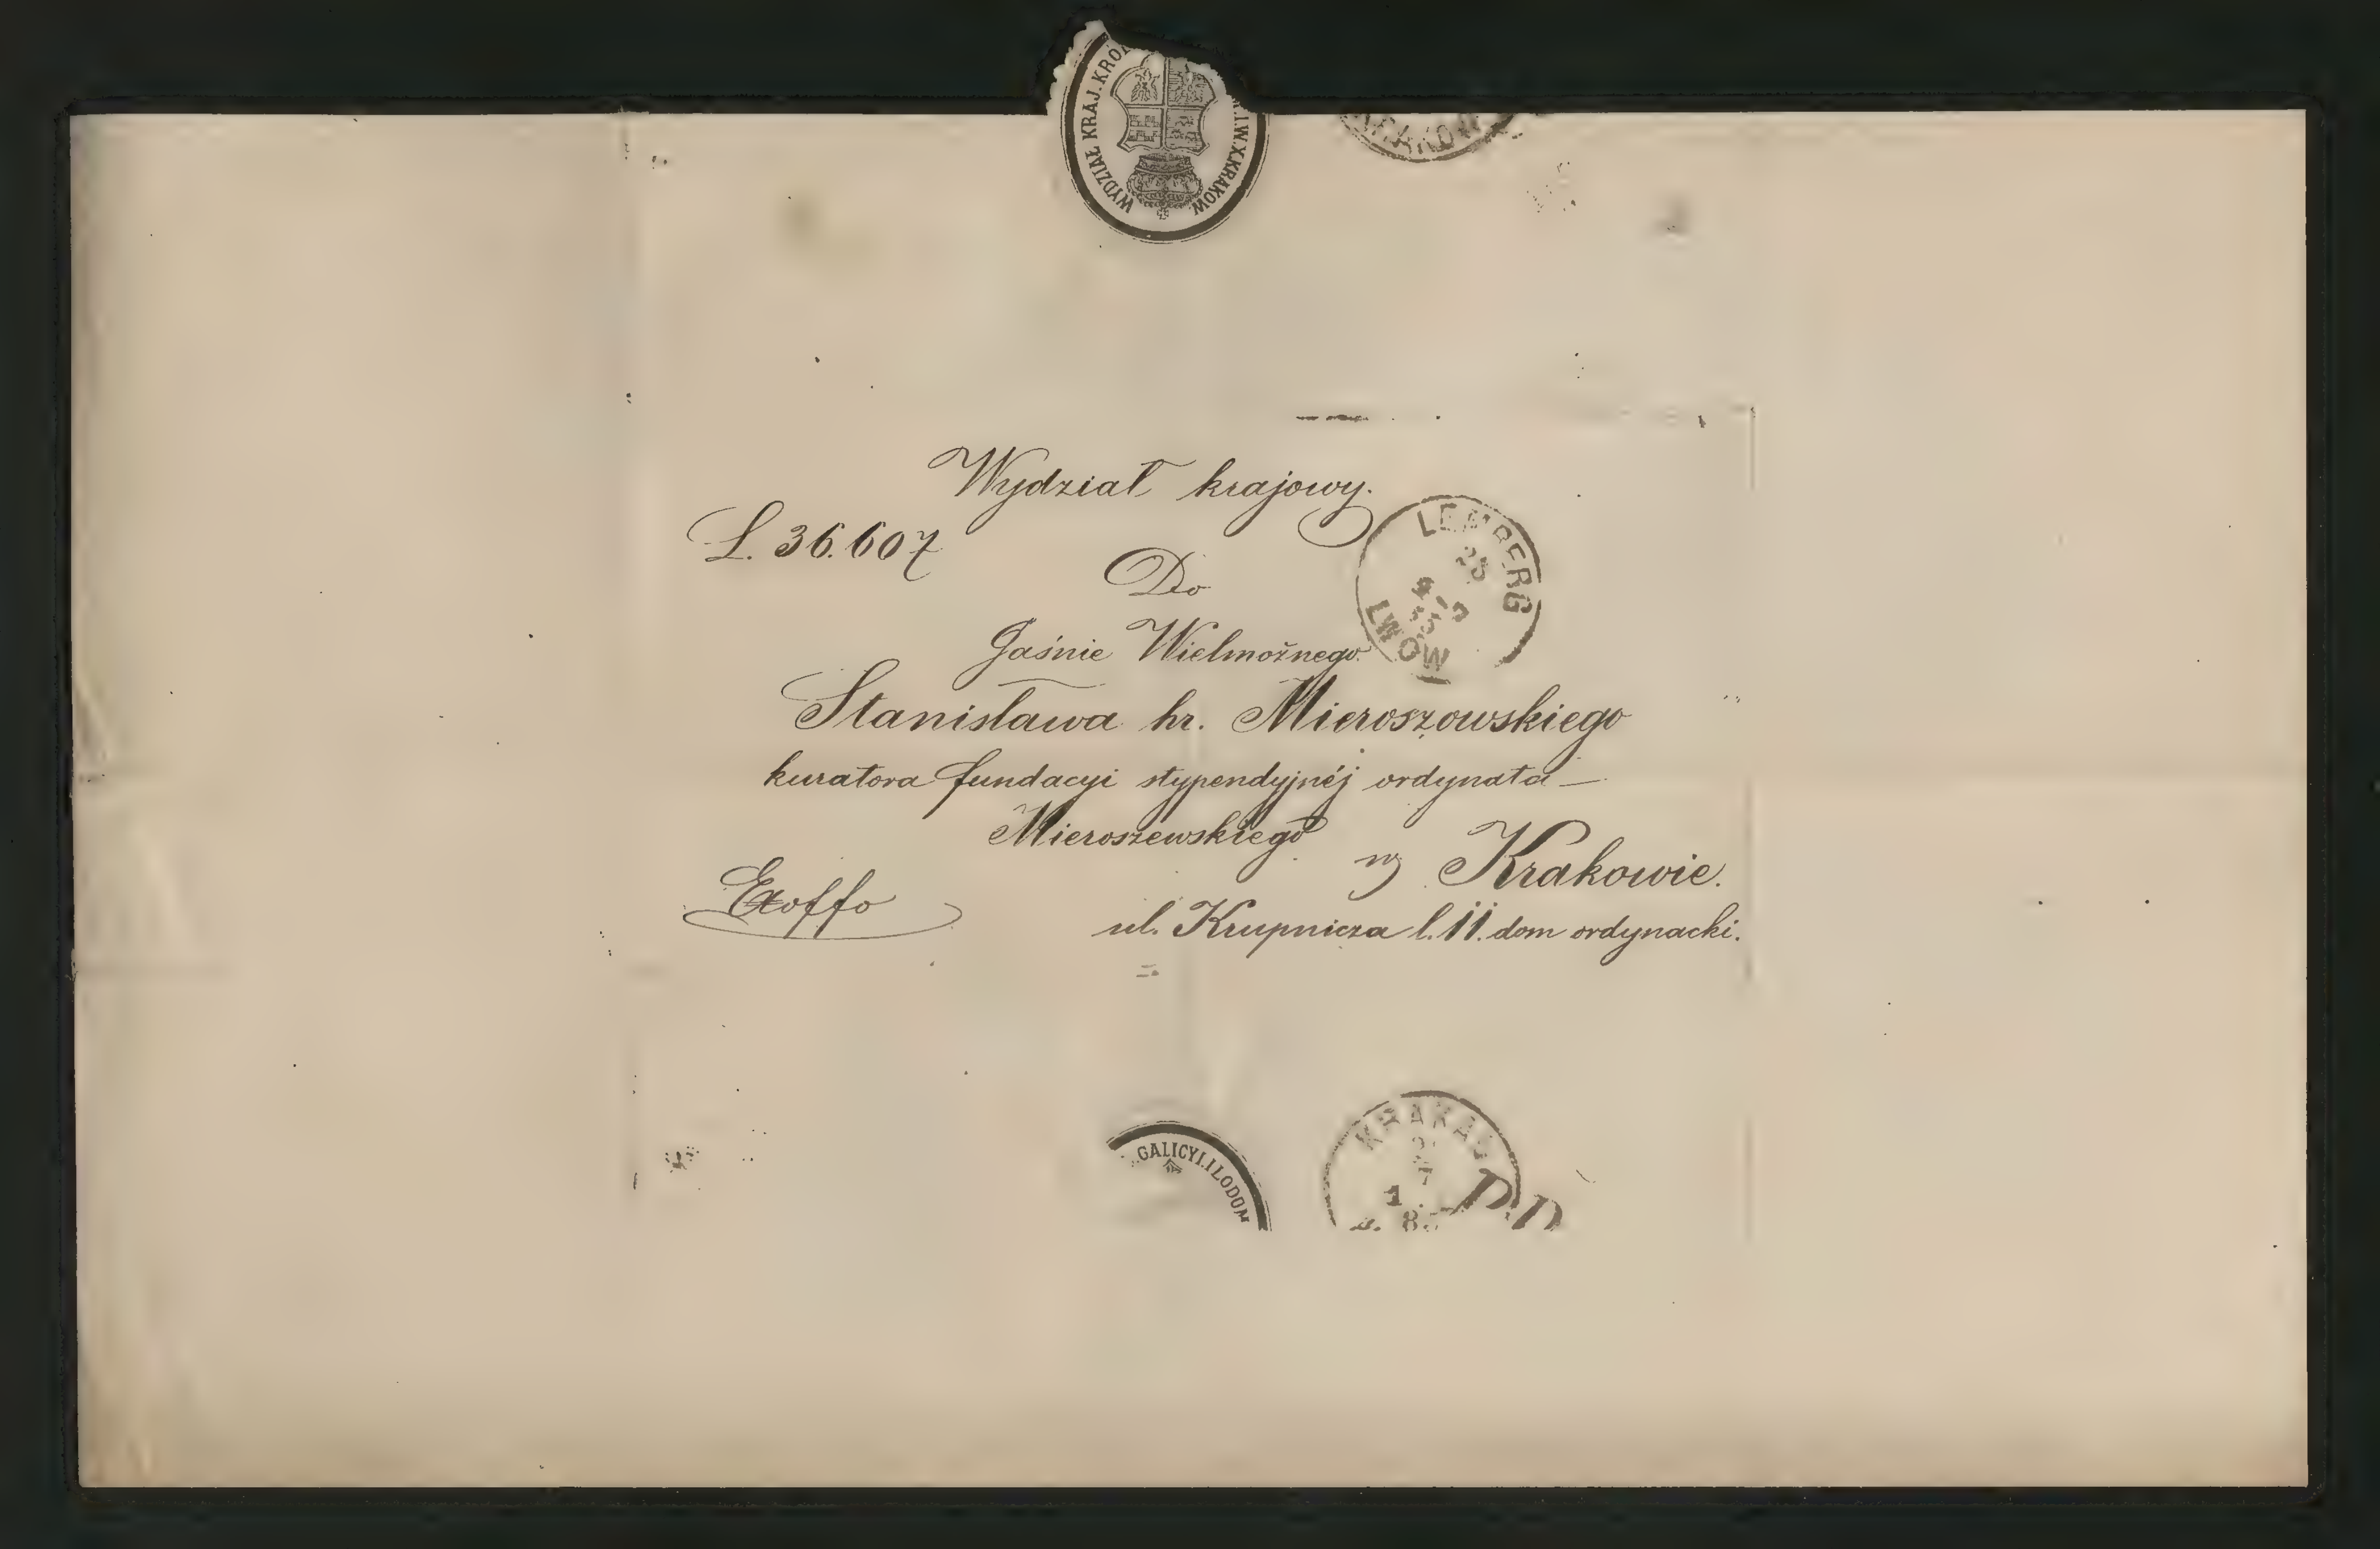 WYDZIAŁ KRAJ. KRÓL
I.W.X.KRAKOW.
KRAKÓW
Wydział krajowy.
L. 36.607
LEMBERG
25
LWÓW
Do
Jaśnie Wielmożnego
Stanisława hr. Mieroszowskiego
kuratora fundacyi stypendyjnéj ordynata
Mieroszewskiego
w Krakowie.
Exoffo
ul. Krupnicza l. 11. dom ordynacki.
GALICYI.I LODOM
KRAKAU